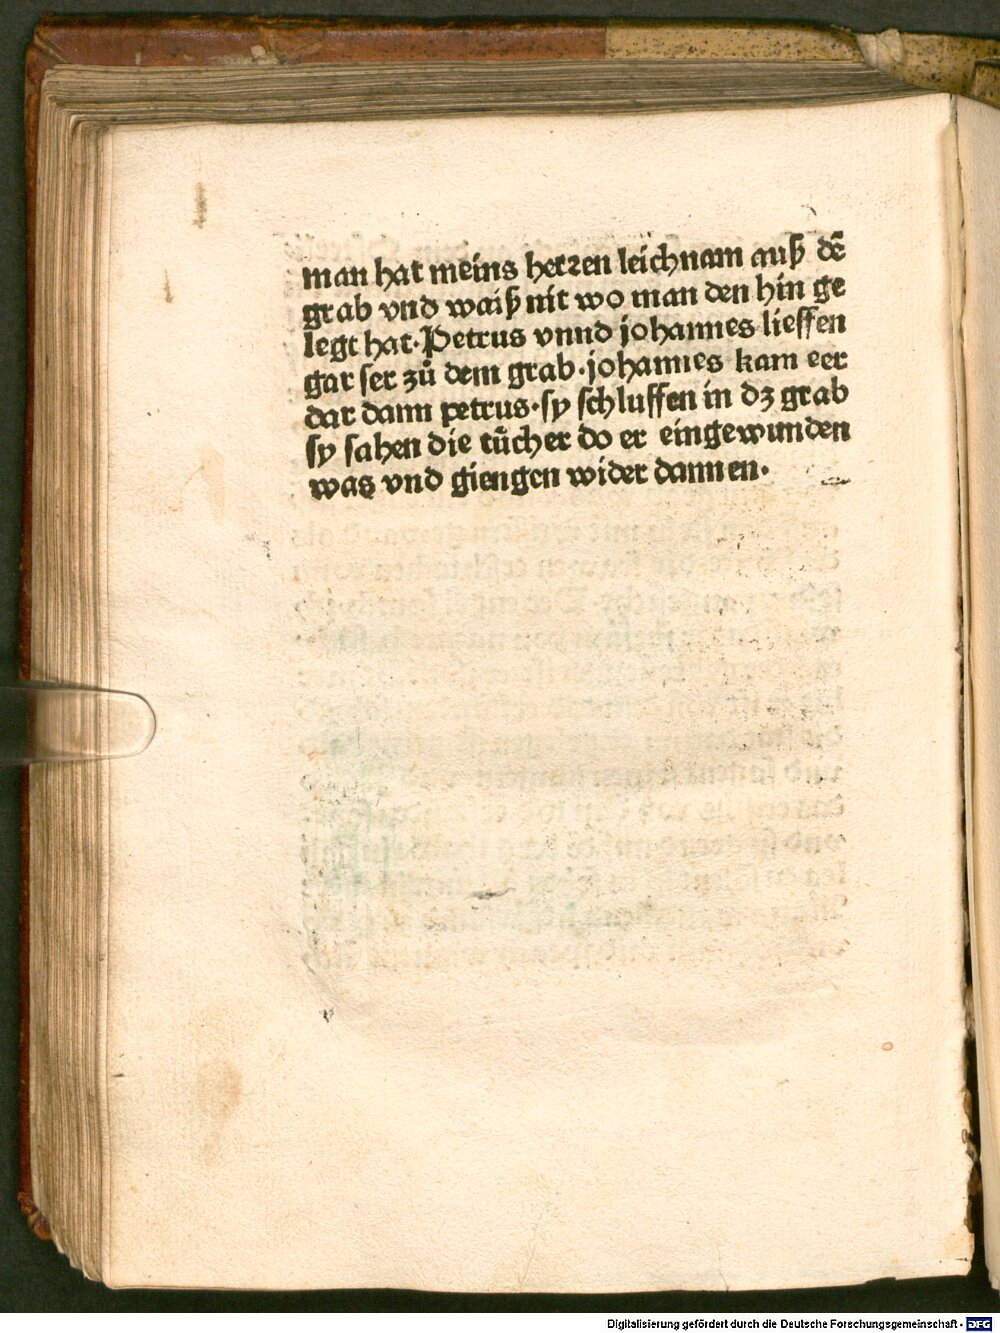 man hat meins herꝛen leichnam auß dē
grab vnd waiß nit wo man den hin ge
legt hat·Petrus vnnd johannes lieffen
gar ser zů dem grab·johannes kam eer
dar dann petrus·sy schluffen in dz grab
sy sahen die tůcher do er eingewunden
was vnd giengen wider dannen·
Digitalisierung gefördert durch die Deutsche Forschungsgemeinschaft - DFG